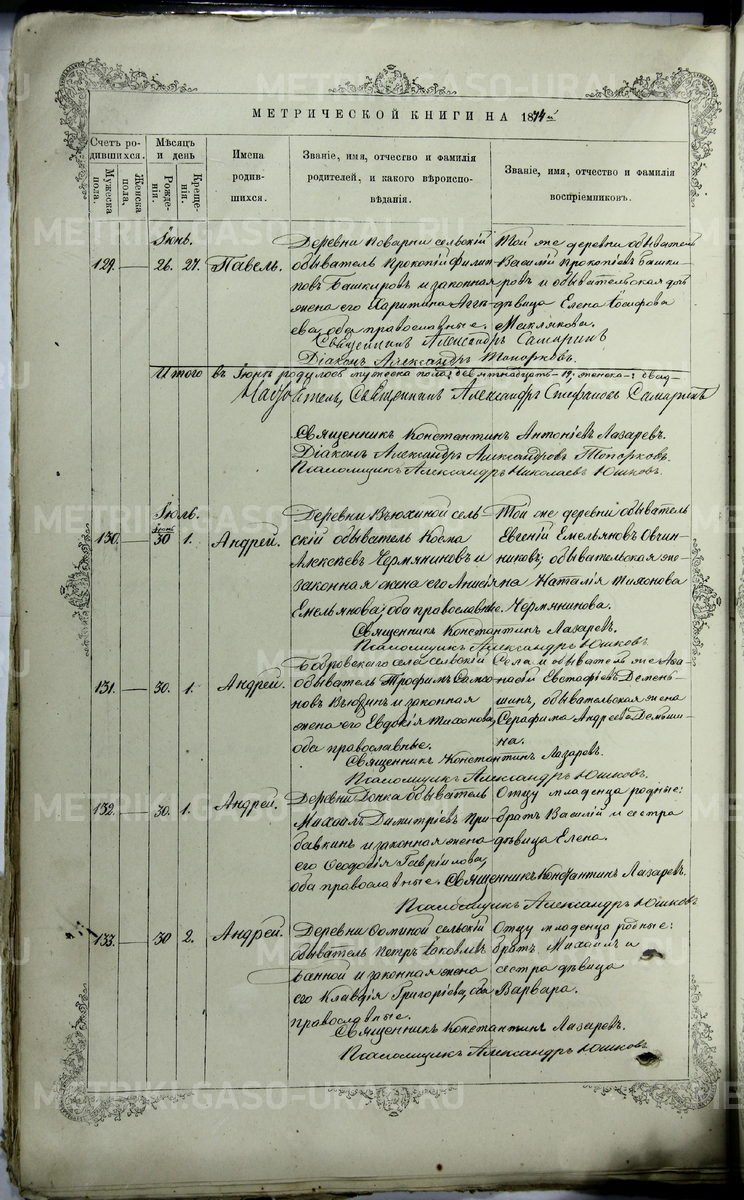 МЕТРИЧЕСКОЙ КНИГИ НА 1874 й
Счетъ родившихся.
Мужеска пола.
Женска пола.
Мѣсяцъ и день
Рожденія.
Крещенія.
Имена родившихся.
Званіе, имя, отчество и фамилія родителей, и какого вѣроисповѣданія.
Званіе, имя, отчество и фамилія воспріемниковъ.
Іюнь.
129. — 26. 27. Павелъ.
Деревни Поварни сельскій
обыватель Прокопій Филип
повъ Башкировъ и законная
жена его Харитина Агге
ева, оба православные.
Той же деревни обыватель
Василій Прокопіевъ Башки
ровъ и обывательская дочь
дѣвица Елена Іосифова
Меклякова.
Священникъ Александръ Самаринъ
Діаконъ Александръ Топорковъ.
Итого въ Іюнѣ родилось мужеска пола: девятнадцать - 19, женска -
Священникъ Александръ Стефановъ Самаринъ
Священникъ Константинъ Антоніевъ Лазаревъ.
Діаконъ Александръ Александровъ Топорковъ.
Псаломщикъ Александръ Николаевъ Юшковъ.
Іюль.
Іюнь
130. — 30 1. Андрей.
Деревни Вьюхиной сель
скій обыватель Косма
Алексѣевъ Чермяниновъ и
законная жена его Анисія
Емельянова, оба православные.
Той же деревни обыватель
Евгеній Емельяновъ Овчин
никовъ; обывательская же
на Наталія Тихонова
Чермянинова.
Священникъ Константинъ Лазаревъ.
Псаломщикъ Александръ Юшковъ
131. — 30. 1. Андрей.
Бобровскаго села сельскій
обыватель Трофимъ Самсо
новъ Вьюхинъ и законная
жена его Евдокія Тихонова,
оба православные.
Села и обыватель же Афа
насій Евстафіевъ Демень
шинъ, обывательская жена
Серафима Андреева Деменьши
на.
Священникъ Константинъ Лазаревъ.
Псаломщикъ Александръ Юшковъ.
132. — 30. 1. Андрей.
Деревни Донка обыватель
Михаилъ Димитріевъ При
бавкинъ и законная жена
его Ѳеодосія Гавріилова,
оба православные.
Отцу младенца родные:
братъ Василій и сестра
дѣвица Елена.
Священникъ Константинъ Лазаревъ.
Псаломщикъ Александръ Юшковъ
133. — 30 2. Андрей.
Деревни Ѳоминой сельскій
обыватель Петръ Іаковлевъ
Банной и законная жена
его Клавдія Григоріева, оба
православные.
Отцу младенца родные:
братъ Михаилъ и
сестра дѣвица
Варвара.
Священникъ Константинъ Лазаревъ.
Псаломщикъ Александръ Юшковъ
METRIKI.GASO-URAL.RU